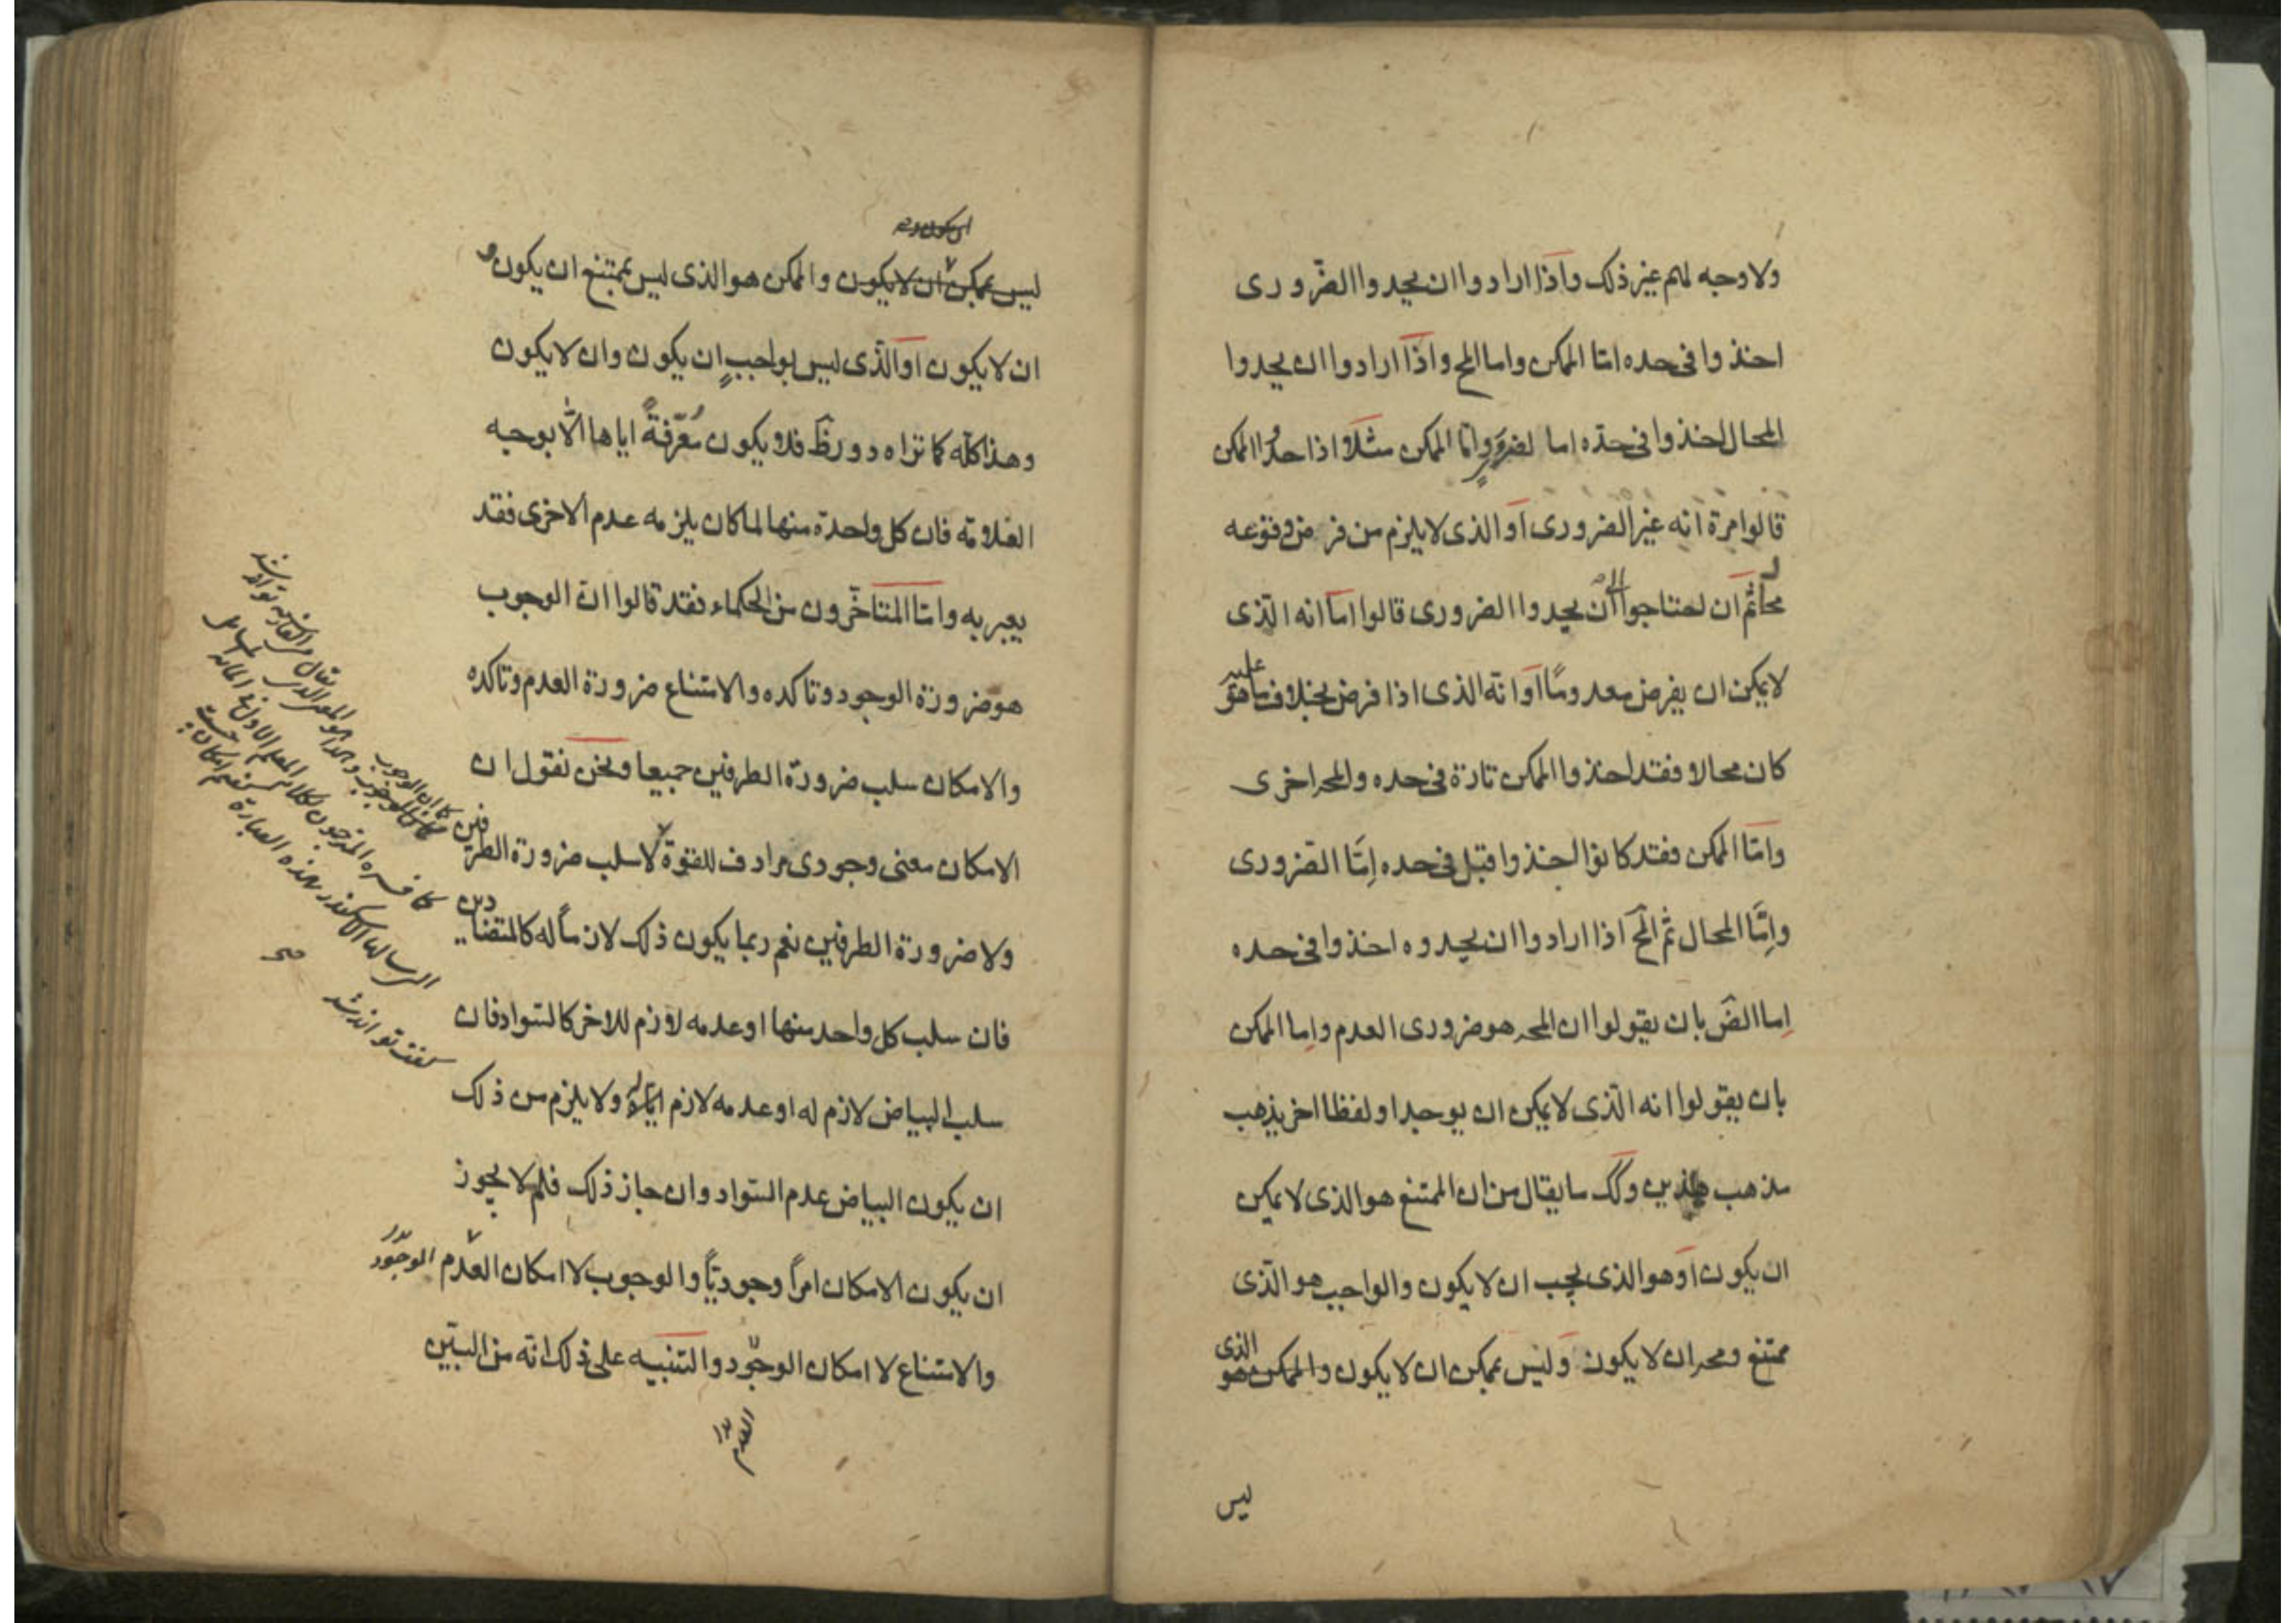 ولا وجه لهم غير ذلك واذا ارادوا ان يحدوا الضروری
اخذوا فی حده امّا الممكن واما المح واذا ارادوا ان يحدوا
المحال اخذوا فی حدّه اما الضروری وامّا الممكن مثلا اذا حدوا الممكن
قالوا مرة انه غير الضروری او الذی لا يلزم من فرض وقوعه
محال ثم ان احتاجوا الی ان يحدوا الضروری قالوا اما انه الّذی
لا يمكن ان يفرض معدومًا او انه الذی اذا فرض بخلاف ما هو عليه
كان محالا فقد اخذوا الممكن تارة فی حده والمح اخری
وامّا الممكن فقد كانوا اخذوا قبل فی حده إمّا الضروری
وإمّا المحال ثم المح اذا ارادوا ان يحدوه اخذوا فی حده
إما الضَ بان يقولوا ان المحـ هو ضروری العدم وإما الممكن
بان يقولوا انه الّذی لا يمكن ان يوجد او لفظا اخر يذهب
مذهب هذين وكك ما يقال من ان الممتنع هو الذی لا يمكن
ان يكون او هو الذی يجب ان لا يكون والواجب هو الّذی
ممتنع ومحـ ان لا يكون وليس بممكن ان لا يكون والممكن هو الذی
ليس
ليس بممكن ان لا يكون والممكن هو الذی ليس بممتنع ان يكون و
ان لا يكون او الّذی ليس بواجبٍ ان يكون وان لا يكون
وهذا كلّه كما تراه دور ظَ فلا يكون مُعرّفةً اياها الّا بوجه
العلامة فان كل واحدة منها لما كان يلزمه عدم الاخری فقد
يعبر به وامّا المتاخّرون من الحكماء فقد قالوا انّ الوجوب
هو ضرورة الوجود وتاكده والامتناع ضرورة العدم وتاكده
والامكان سلب ضرورة الطرفين جميعا ونحن نقول ان
الامكان معنی وجودی مرادف للقوة لا سلب ضرورة الطرفين
ولا ضرورة الطرفين نعم ربما يكون ذلك لازمًا له كالمتضادين
فان سلب كل واحد منها او عدمه لازم للاخر كالسّواد فان
سلب البياض لازم له او عدمه لازم له ولا يلزم من ذلك
ان يكون البياض عدم السّواد وان جاز ذلك فلم لا يجوز
ان يكون الامكان امرًا وجوديًّا والوجوب لا امكان العدم الوجود
والامتناع لا امكان الوجود والتّنبيه علی ذلك انه من البيّن
العدم
كما فسره المترجون لكلام المعلم الاول
الرسالة الاسكندر بهذه العبارة